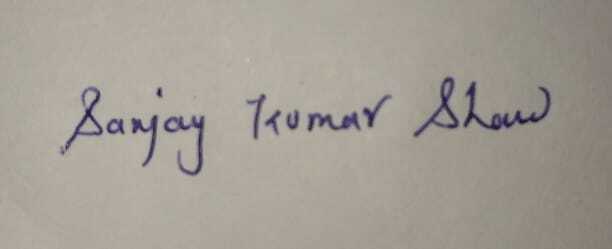 Sanjay Kumar Shaw